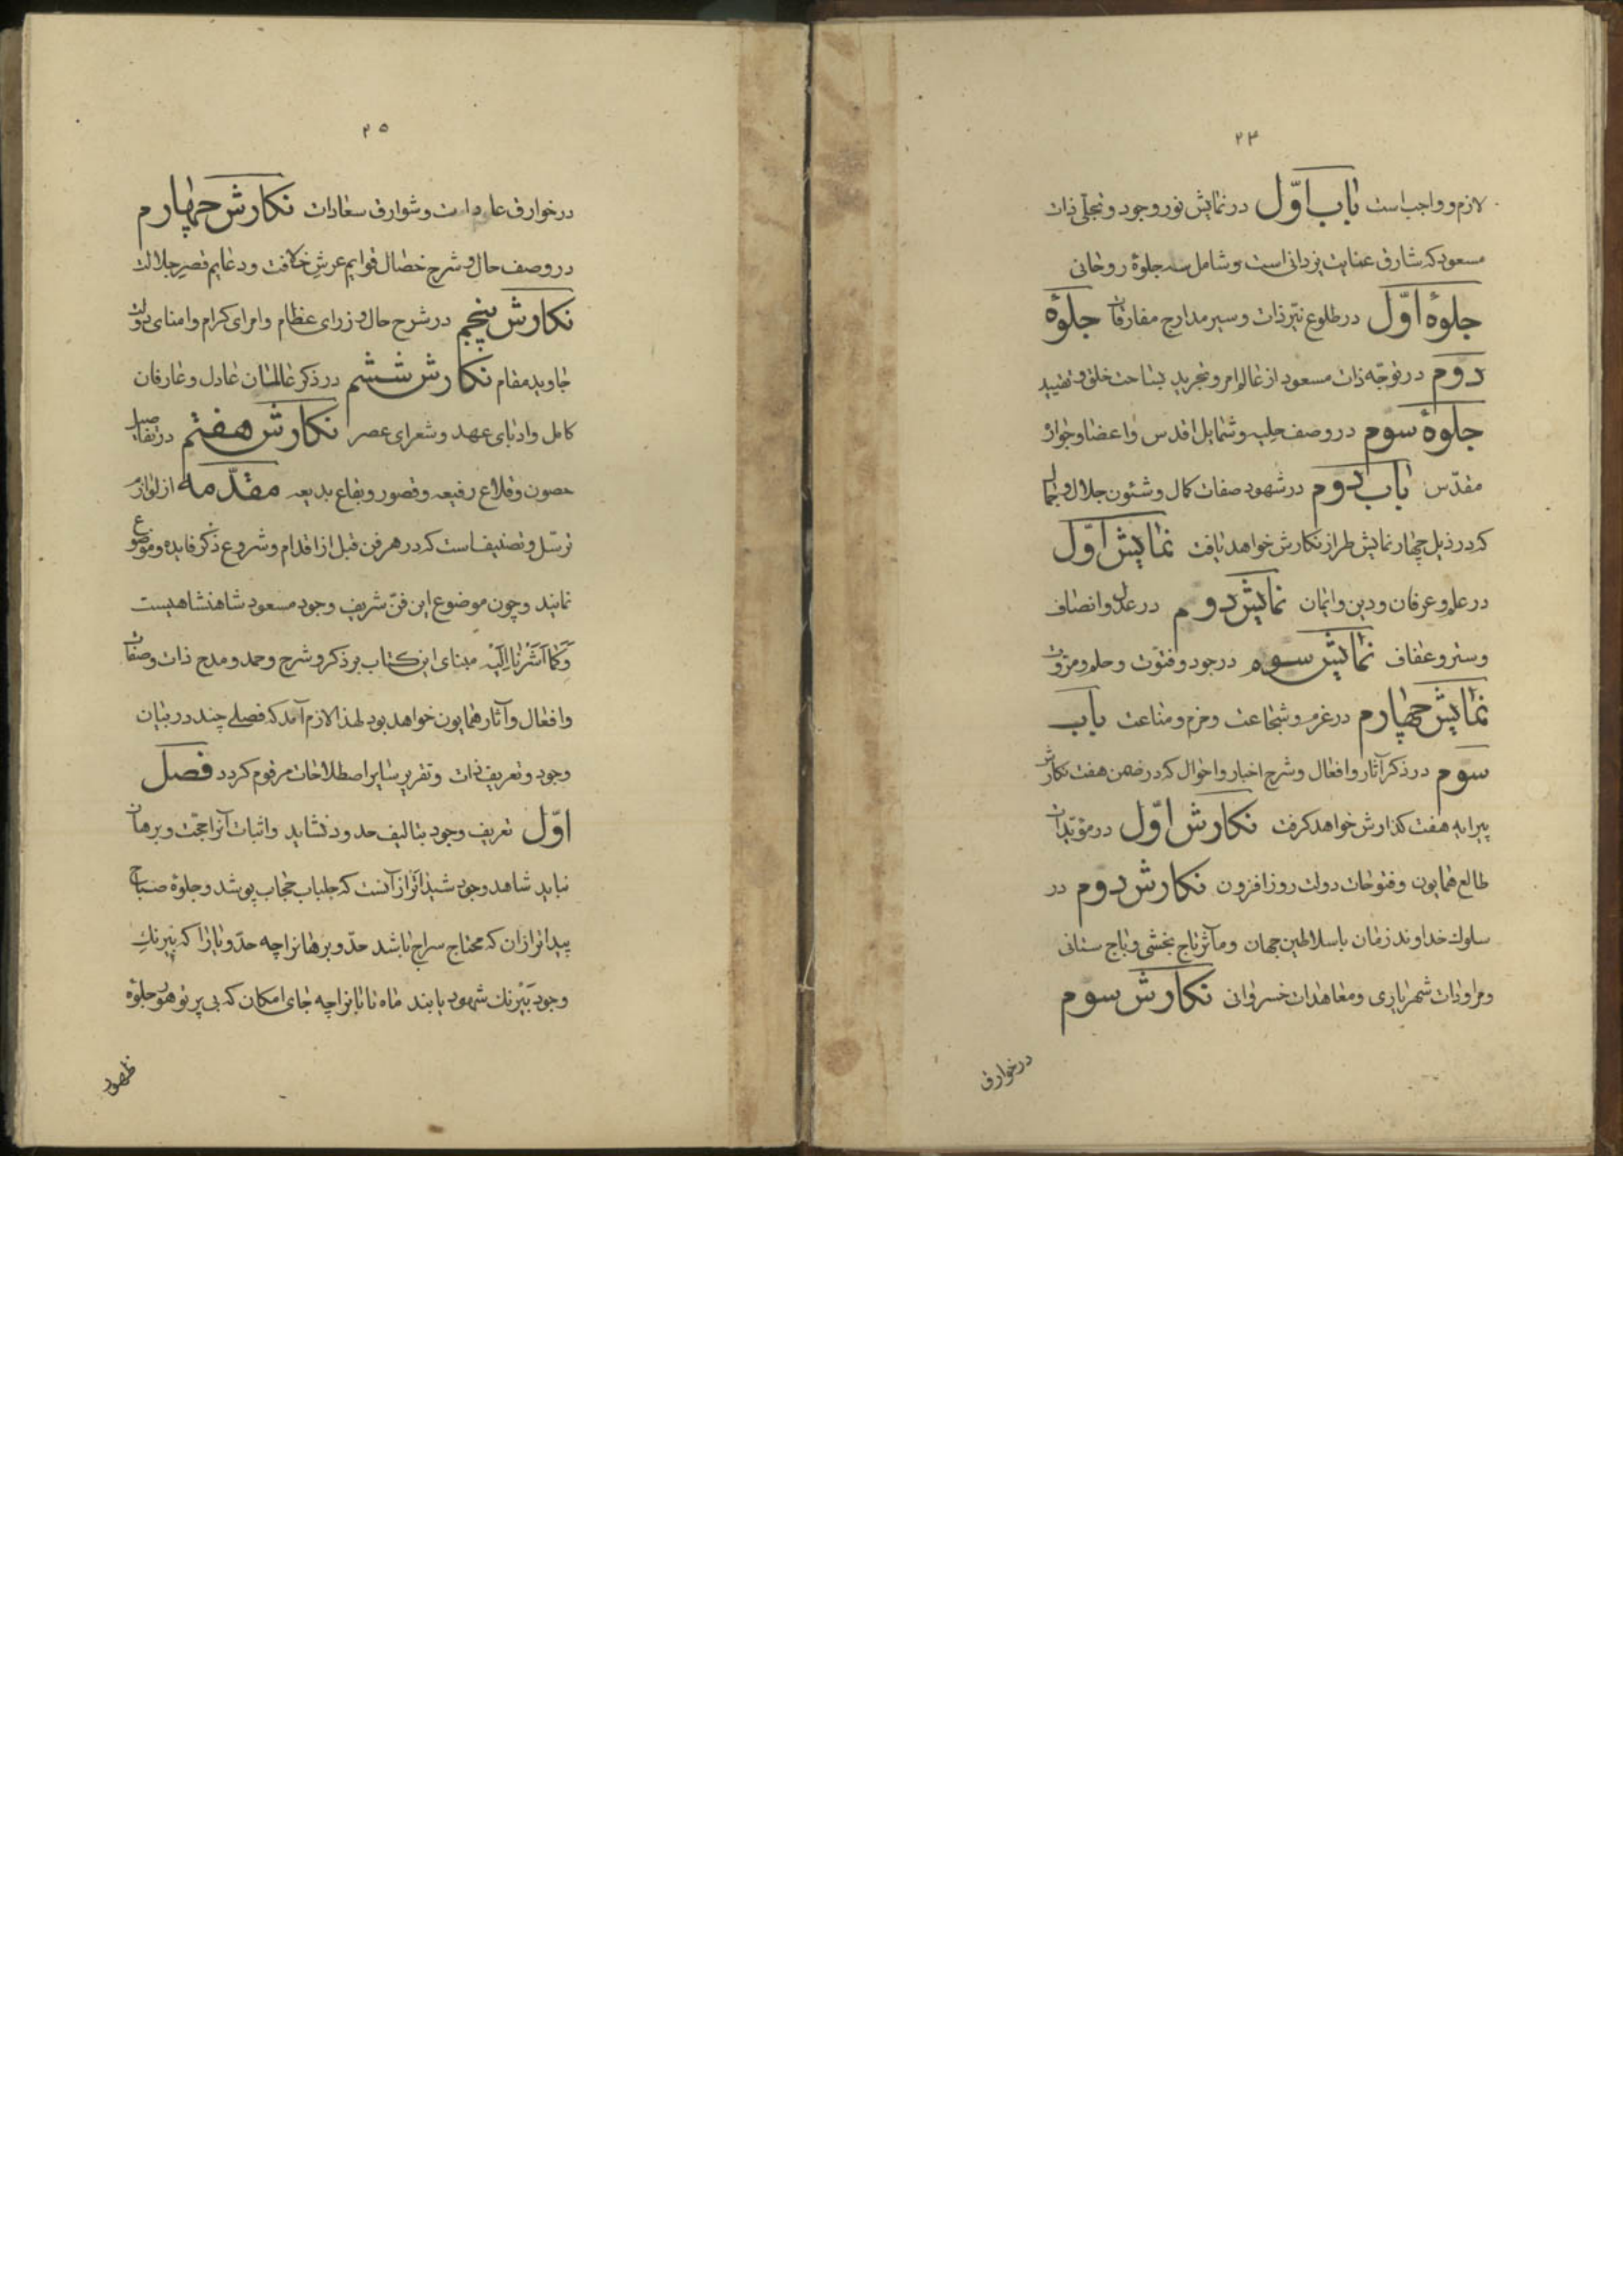 ۲۴
لازم و واجب است باب اوّل در نمایش نور وجود و تجلّی ذات
مسعود که شارق عنایت یزدانی است و شامل سه جلوهٔ روحانی
جلوهٔ اوّل در طلوع نیّر ذات و سیر مدارج مفارقات جلوهٔ
دوم در توجّه ذات مسعود از عالم امر و تجرید بساحت خلق و تقیید
جلوهٔ سوم در وصف حلیه و شمایل اقدس و اعضا و جوارح
مقدّس باب دوم در شهود صفات کمال و شئون جلال و جمال
که در ذیل چهار نمایش طراز نکارش خواهد یافت نمایش اوّل
در علم و عرفان و دین و ایمان نمایش دوم در عدل و انصاف
و ستر و عفاف نمایش سوم در جود و فتوّت و حلم و مروّت
نمایش چهارم در عزم و شجاعت و حزم و مناعت باب
سوم در ذکر آثار و افعال و شرح اخبار و احوال که در ضمن هفت نکارش
پیرایه هفت کذارش خواهد کرفت نکارش اوّل در مؤیّدات
طالع همایون و فتوحات دولت روز افزون نکارش دوم در
سلوک خداوند زمان با سلاطین جهان و مآثر تاج بخشی و باج ستانی
و مراودات شهریاری و معاهدات خسروانی نکارش سوم
در خوارق
۲۵
در خوارق عادات و شوارق سعادات نکارش چهارم
در وصف حال و شرح خصال قوایم عرش خلافت و دعایم قصر جلالت
نکارش پنجم در شرح حال وزرای عظام و امرای کرام و امنای دولت
جاوید مقام نکارش ششم در ذکر عالمان عادل و عارفان
کامل و ادبای عهد و شعرای عصر نکارش هفتم در تفاصیل
حصون و قلاع رفیعه و قصور و بقاع بدیعه مقدّمه از لوازم
ترسّل و تصنیف است که در هر فن قبل از اقدام و شروع ذکر فایده و موضوع
نمایند و چون موضوع این فنّ شریف وجود مسعود شاهنشاهیست
وَکَما اَشَرْنا اِلَیْهِ مبنای این کتاب بر ذکر و شرح و حمد و مدح ذات و صفات
و افعال و آثار همایون خواهد بود لهذا لازم آمد که فصلی چند در بیان
وجود و تعریف ذات و تقریر سایر اصطلاحات مرقوم کردد فصل
اوّل تعریف وجود بتالیف حدود نشاید و اثبات آنرا حجّت و برهان
نباید شاهد وجود شیداتر از آنست که جلباب حجاب پوشد و جلوهٔ صباح
پیداتر از ان که محتاج سراج باشد حدّ و برهانرا چه حدّ و یارا که نیرنک
وجود بَیْرنک شهود یابند ماه تابانرا چه جای امکان که بی پرتو هور جلوهٔ
ظهور